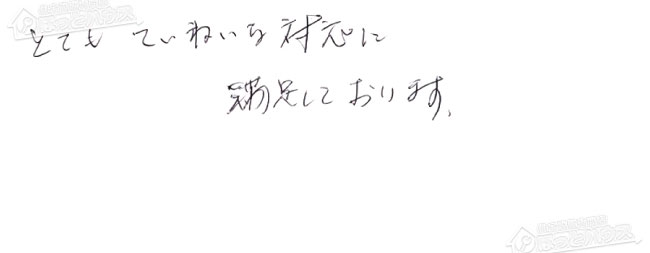 とても ていねいな対応に
満足しております。